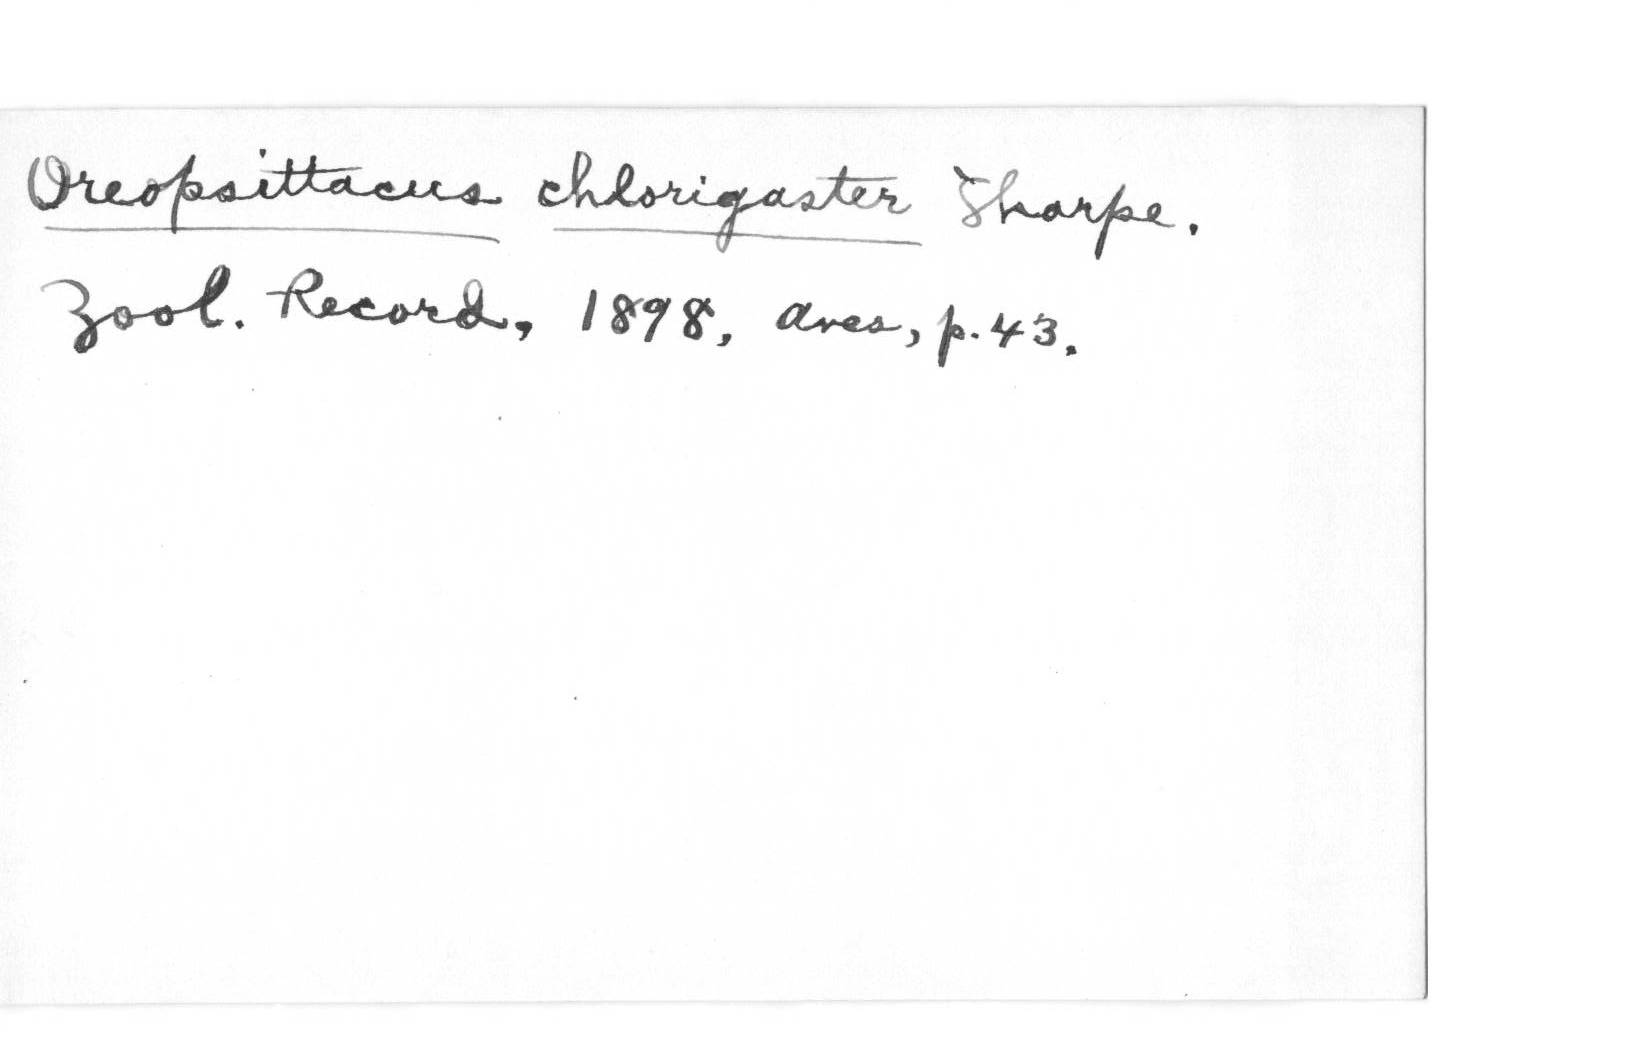 Oreopsittacus chlorigaster Sharpe.
Zool. Record, 1898, Aves, p. 43.